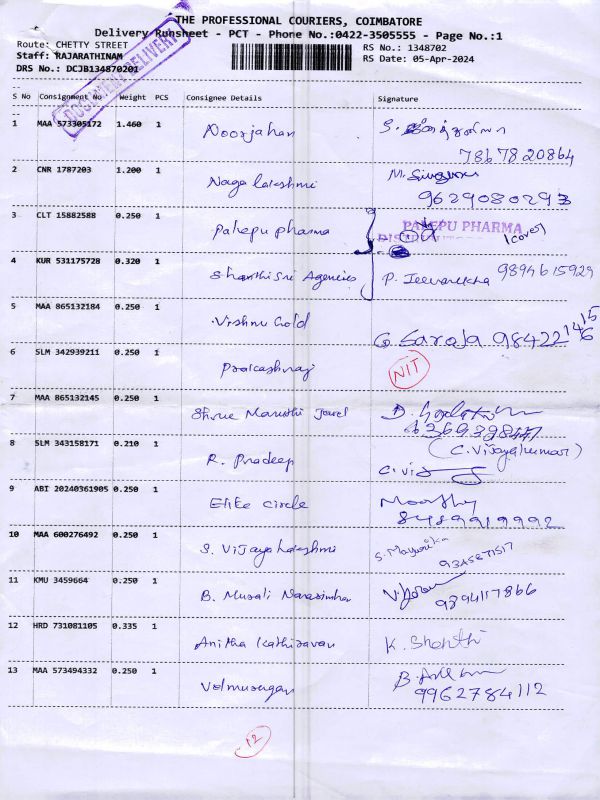 THE PROFESSIONAL COURIERS, COIMBATORE
Delivery Runsheet - PCT - Phone No.:0422-3505555 - Page No.:1
Route: CHETTY STREET
RS No.: 1348702
Staff: RAJARATHINAM
RS Date: 05-Apr-2024
DRS No.: DCJB134870201
DOCUMENT DELIVERY
S No Consignment No Weight PCS Consignee Details Signature
1 MAA 573305172 1.460 1 Noorjahan
7867820864
2 CNR 1787203 1.200 1 Naga lakshmi M.
9629080293
3 CLT 15882588 0.250 1 Palepu pharma PALEPU PHARMA
(cover)
4 KUR 531175728 0.320 1 Shanthi Sri Agencies P. Jeevarekha 9894615929
5 MAA 865132184 0.250 1 Vishnu Gold
G. Saroja 98422
6 SLM 342939211 0.250 1 Prakashraj NIT
7 MAA 865132145 0.250 1 Shree Maruthi Jewel
8 SLM 343158171 0.210 1 R. Pradeep (C. Vijayakumar)
9 ABI 20240361905 0.250 1 Elite Circle Moorthy
8489919992
10 MAA 600276492 0.250 1 S. Vijaya Lakshmi S. Mayurika
9345871517
11 KMU 3459664 0.250 1 B. Murali Narasimhan
9894117866
12 HRD 731081105 0.335 1 Anitha Kathiravan K. Shanthi
13 MAA 573494332 0.250 1 Velmurugan
9962784112
12